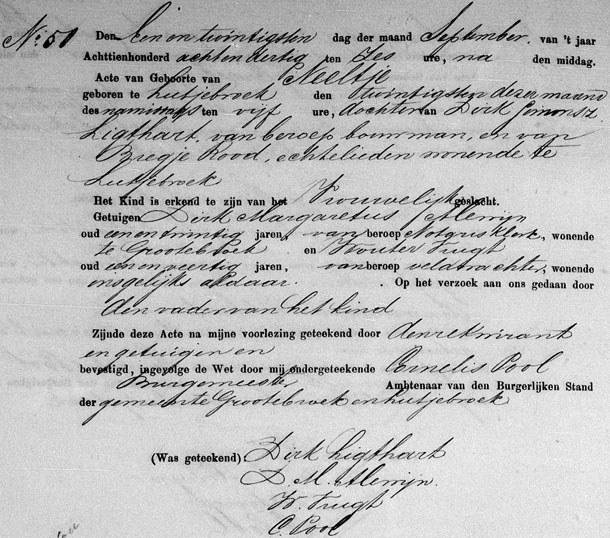 No. 51 Den Een en twintigsten dag der maand September, van 't jaar
Achttienhonderd acht en dertig ten Zes ure, na den middag.
Acte van Geboorte van Neeltje
geboren te Lutjebroek den twintigsten dezer maand
des namiddags ten vijf ure, dochter van Dirk Simonsz
Ligthart, van beroep bouwman, en van
Bregje Rood, echtelieden wonende te
Lutjebroek
Het Kind is erkend te zijn van het Vrouwelijk geslacht.
Getuigen Dirk Margaretus
oud een en twintig jaren, van beroep Notarisklerk, wonende
te Grootebroek en Wouter
oud een en veertig jaren, van beroep veldwachter, wonende
insgelijks aldaar. Op het verzoek aan ons gedaan door
den vader van het kind
Zijnde deze Acte na mijne voorlezing geteekend door den requirant
en getuigen en
bevestigd, ingevolge de Wet door mij ondergeteekende Cornelis Pool
Burgemeester Ambtenaar van den Burgerlijken Stand
der gemeente Grootebroek en Lutjebroek
(Was geteekend): Dirk Ligthart
D. M.
W.
C. Pool